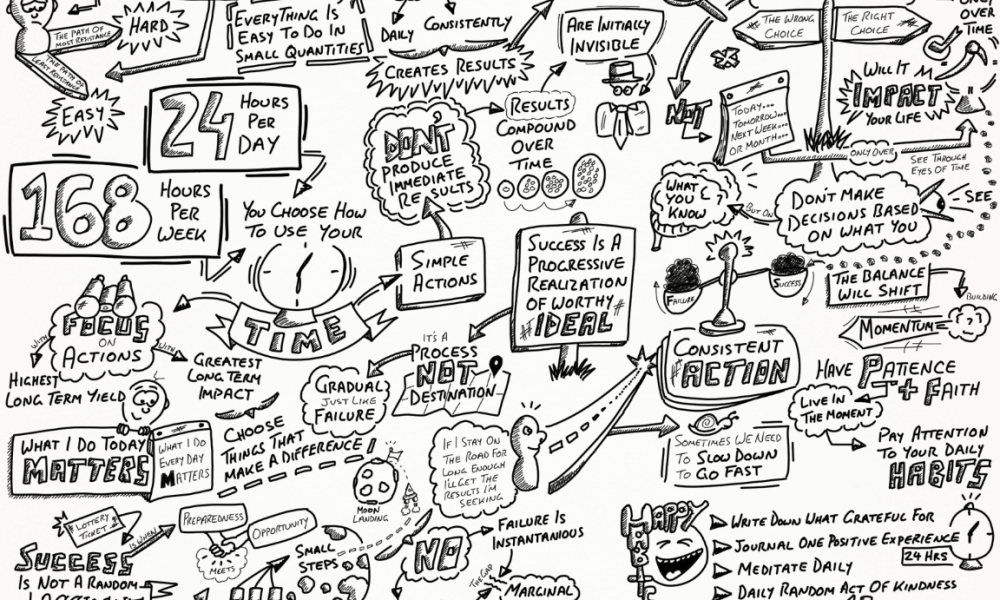 HARD
THE PATH OF
MOST RESISTANCE
THE PATH OF
LEAST RESISTANCE
EASY
EVERYTHING IS
EASY TO DO IN
SMALL QUANTITIES
DAILY
CONSISTENTLY
CREATES RESULTS
ARE INITIALLY
INVISIBLE
THE WRONG
CHOICE
THE RIGHT
CHOICE
ONLY
OVER
TIME
WILL IT
IMPACT
YOUR LIFE
24
HOURS
PER
DAY
168
HOURS
PER
WEEK
YOU CHOOSE HOW
TO USE YOUR
TIME
DON'T
PRODUCE
IMMEDIATE
RESULTS
RESULTS
COMPOUND
OVER
TIME
NOT
TODAY...
TOMORROW...
NEXT WEEK...
OR MONTH...
ONLY OVER
SEE THROUGH
EYES OF TIME
WHAT
YOU
KNOW
BUT ON
DON'T MAKE
DECISIONS BASED
ON WHAT YOU
SEE
SIMPLE
ACTIONS
SUCCESS IS A
PROGRESSIVE
REALIZATION
OF WORTHY
IDEAL
FAILURE
SUCCESS
THE BALANCE
WILL SHIFT
BUILDING
MOMENTUM
?
FOCUS
ON
ACTIONS
WITH
WITH
HIGHEST
LONG TERM YIELD
GREATEST
LONG TERM
IMPACT
IT'S A
PROCESS
NOT
DESTINATION
GRADUAL
JUST LIKE
FAILURE
CONSISTENT
ACTION
HAVE PATIENCE
+ FAITH
LIVE IN
THE MOMENT
PAY ATTENTION
TO YOUR DAILY
HABITS
WHAT I DO TODAY
MATTERS
WHAT I DO
EVERY DAY
MATTERS
CHOOSE
THINGS THAT
MAKE A DIFFERENCE!
MOON
LANDING
IF I STAY ON
THE ROAD FOR
LONG ENOUGH
I'LL GET THE
RESULTS I'M
SEEKING
SOMETIMES WE NEED
TO SLOW DOWN
TO GO FAST
LOTTERY
TICKET
SUCCESS
IS NOT A RANDOM
IS WHEN
PREPAREDNESS
MEETS
OPPORTUNITY
SMALL
STEPS
NO
FAILURE IS
INSTANTANIOUS
THE GAP
MARGINAL
HAPPY
HABITS
WRITE DOWN WHAT GRATEFUL FOR
JOURNAL ONE POSITIVE EXPERIENCE
24 HRS
MEDITATE DAILY
DAILY RANDOM ACT OF KINDNESS